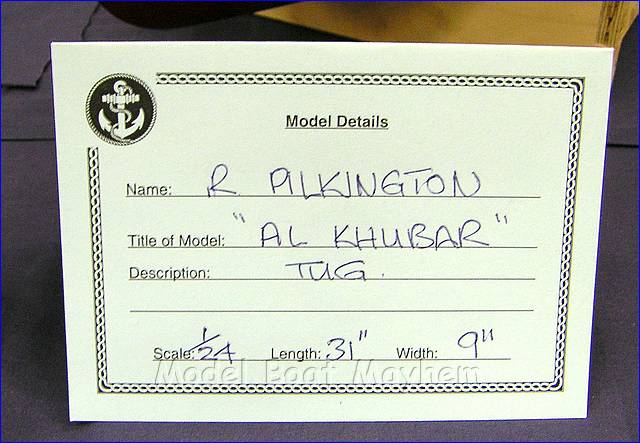 Model Details
Name: R PILKINGTON
Title of Model: "AL KHUBAR"
Description: TUG.
Scale: 1/24 Length: 31" Width: 9"
Model Boat Mayhem